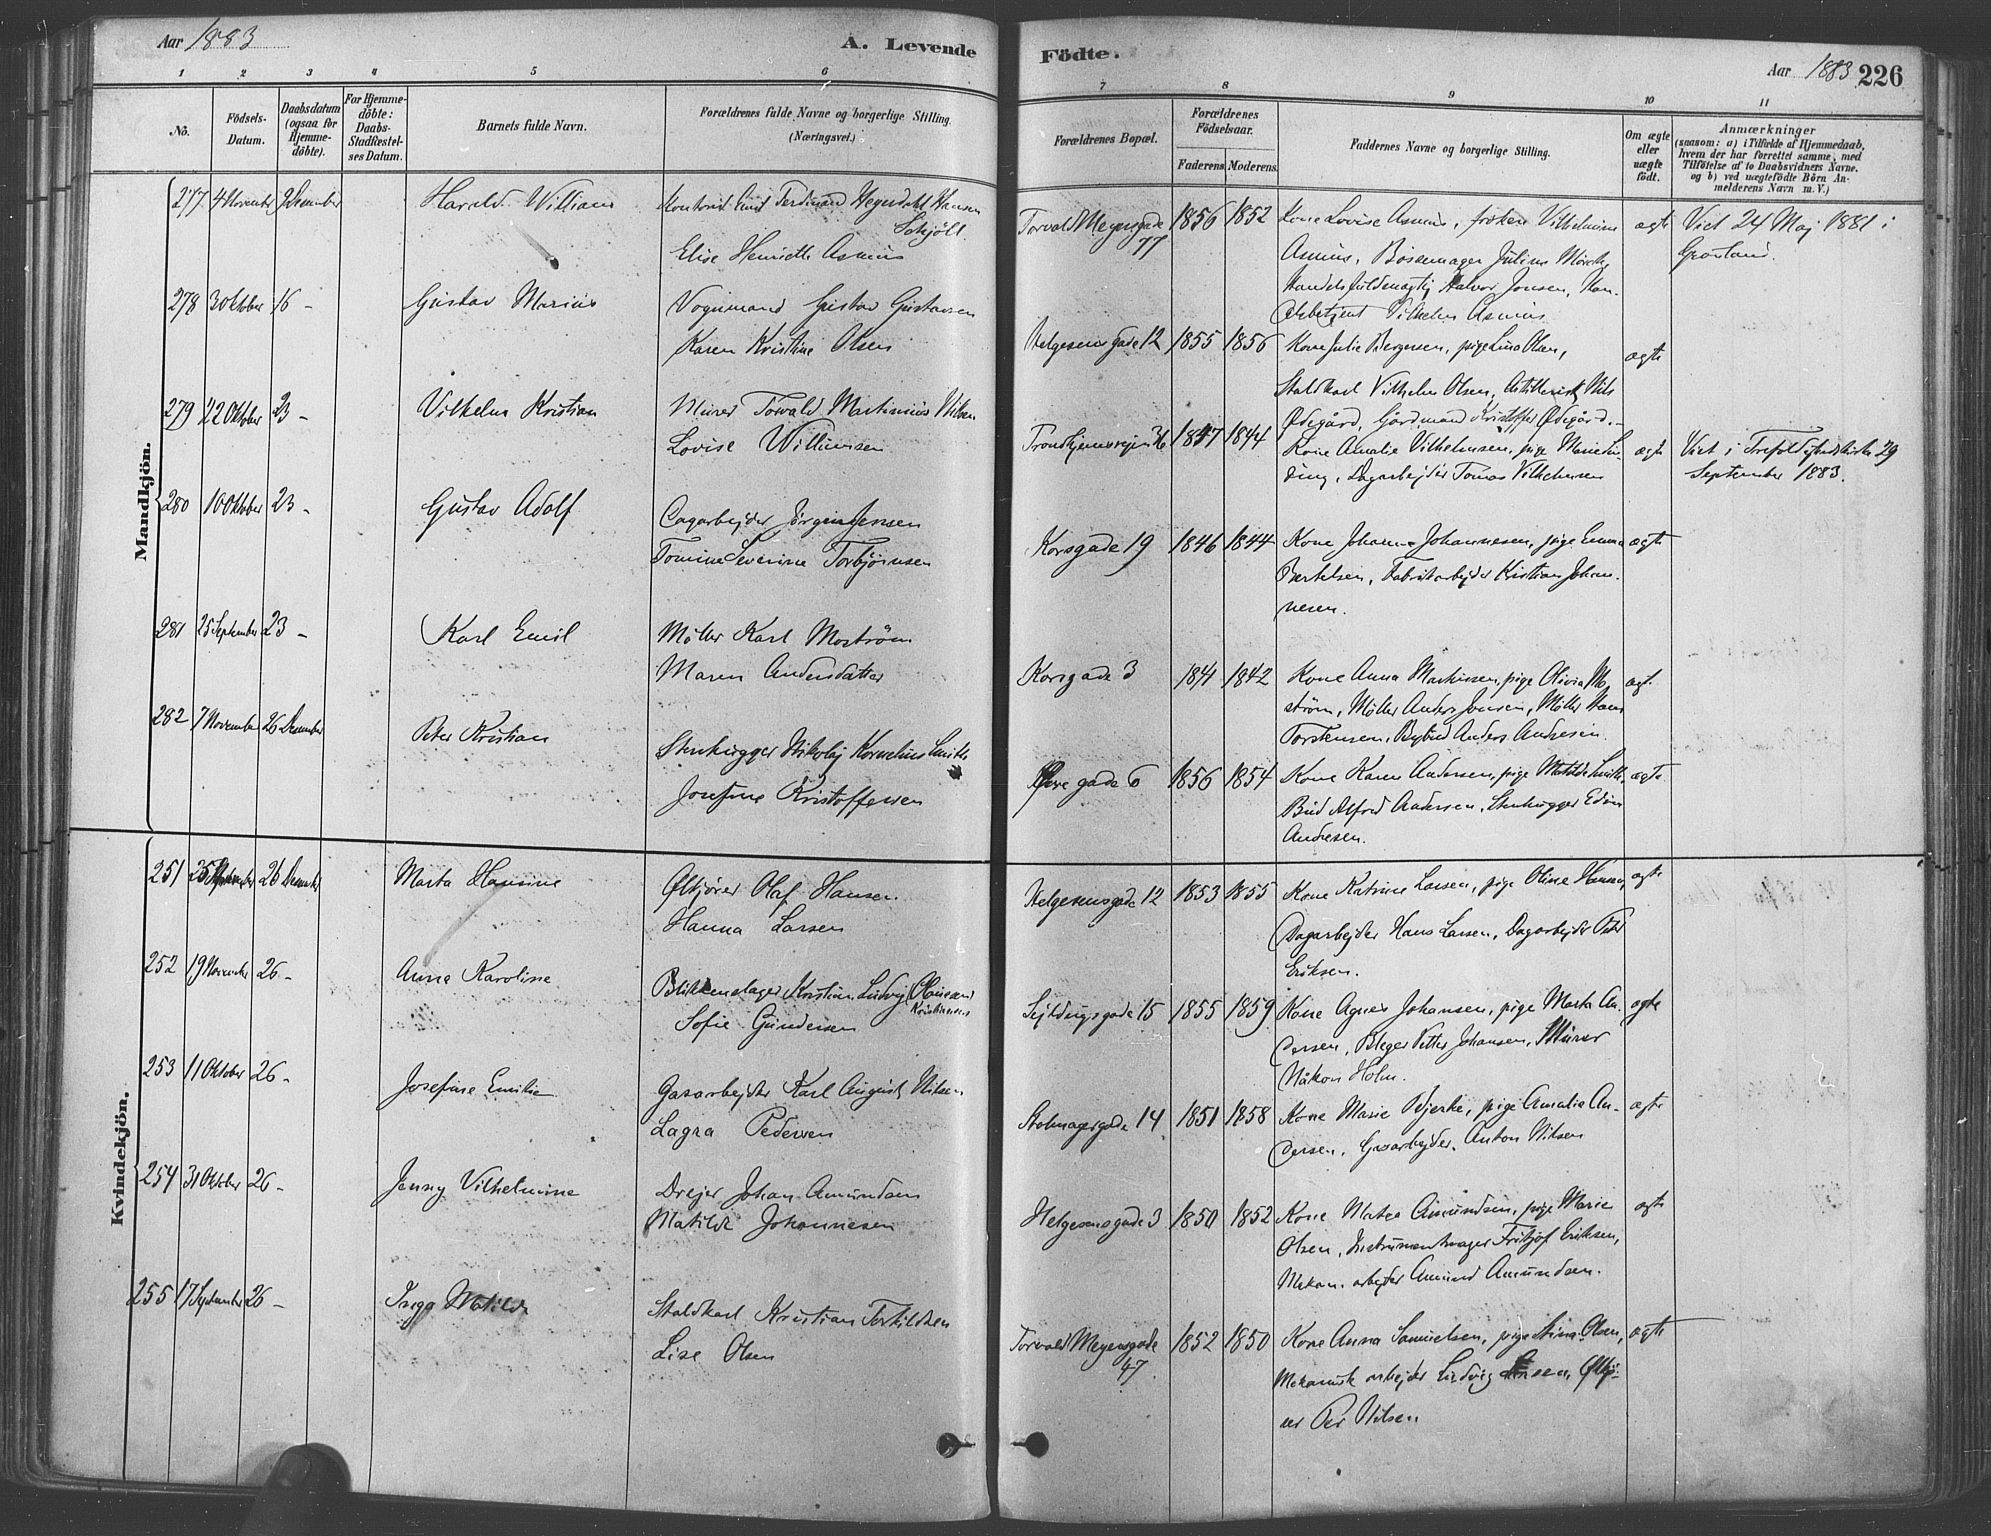 Aar 1883
A. Levende
Födte.
Aar 1883 226
1 2 3 4 5 6 7 8 9 10 11
No.
Födsels-
Datum.
Daabsdatum
(ogsaa for
Hjemme-
döbte).
For Hjemme-
döbte:
Daabs-
Stadfæstel-
ses Datum.
Barnets fulde Navn.
Forældrenes fulde Navne og borgerlige Stilling.
(Næringsvei.)
Forældrenes Bopæl.
Forældrenes
Födselsaar.
Faderens Moderens.
Faddernes Navne og borgerlige Stilling.
Om ægte
eller
uægte
födt.
Anmærkninger
(saasom: a) i Tilfælde af Hjemmedaab,
hvem der har forrettet samme, med
Tilföielse af to Daabsvidners Navne,
og b) ved uægtefödte Börn An-
melderens Navn m. V.)
Mandkjön.
277 4 November 9 Desember Harald William
Ferdinand Hansen
Elise Henriette Asmus
Torvald Meyersgade
77
1856 1852
Kone Lovise Asmus, frøken Vilhelmine
Asmus, Julius
Halvor Jensen,
Vilhelm Asmus
ægte
Viet 24 Maj 1881 i
Grønland.
278 30 Oktober 16 - Gustav Marius
Vognmand Gustav Gustavsen
Karen Kristine Olsen
Helgesensgade 12 1855 1856
Kone Julie Bergersen, pige Lina Olsen,
Staldkarl Vilhelm Olsen, Artillerist Nils
Ødegård, Gårdmand Kristoffer Ødegård.
ægte
279 22 Oktober 23 - Vilhelm Kristian
Murer Torvald Martinius Nilsen
Lovise Willumsen
Trondhjemsvejen 36 1847 1844
Kone Amalie Vilhelmsen, pige Marie
Dagarbejder Tomas Vilhelmsen
ægte
Viet i Trefoldighedskirken 29
September 1883.
280 10 Oktober 23 - Gustav Adolf
Dagarbejder Jørgen Jensen
Tomine Severine Torbjørnsen
Korsgade 19 1846 1844
Kone Johanne Johannesen, pige Emma
Bertelsen, Fabrikarbejder Kristian Johan-
nesen.
ægte
281 25 September 23 - Karl Emil
Møller Karl Moström
Maren Andersdatter
Korsgade 3 1841 1842
Kone Anna Martinsen, pige Olivia Mo-
ström, Møller Anders Jonsen, Møller Hans
Torstensen, Bybud Anders Andresen.
ægte
282 7 November 26 Desember Peter Kristian
Stenhugger Nikolaj Kornelius Smith
Josefine Kristoffersen
gade 6 1856 1854
Kone Karen Andersen, pige Matilde Smith
Bud Alfred Andersen, Stenhugger Edvin
Andresen.
ægte
Kvindekjön.
251 26 Desember Marta Hansine
Ølkjører Olaf Hansen
Hanna Larsen
Helgesensgade 12 1853 1855
Kone Katrine Larsen, pige Oline Hansen,
Dagarbejder Hans Larsen, Dagarbejder Peter
Eriksen.
ægte
252 19 November 26 - Anna Karoline
Blikkenslager Kristian Ludvig
Kristiansen
Sofie Gundersen
Sejldugsgade 15 1855 1859
Kone Agnes Johansen, pige Marta An-
dersen, Petter Johansen, Murer
Håkon Holm.
ægte
253 11 Oktober 26 - Josefine Emilie
Gasarbejder Karl August Nilsen
Lagra Pedersen
Stolmagergade 14 1851 1858
Kone Marie Bjerke, pige Amalie An-
dersen, Gasarbejder Anton Nilsen
ægte
254 31 Oktober 26 - Jenny Vilhelmine
Drejer Johan Amundsen
Matilde Johannesen
Helgesensgade 3 1850 1852
Kone Matea Amundsen, pige Marie
Olsen, Instrumentmager Fritjof Eriksen,
Mekan. arbejder Amund Amundsen.
ægte
255 17 September 26 - Inga Matilde
Staldkarl Kristian Torkildsen
Lise Olsen
Torvald Meyersgade
47
1852 1850
Kone Anna Samuelsen, pige Stina Olsen,
Mekanisk arbejder Ludvig Ølkjø-
rer Per Nilsen
ægte